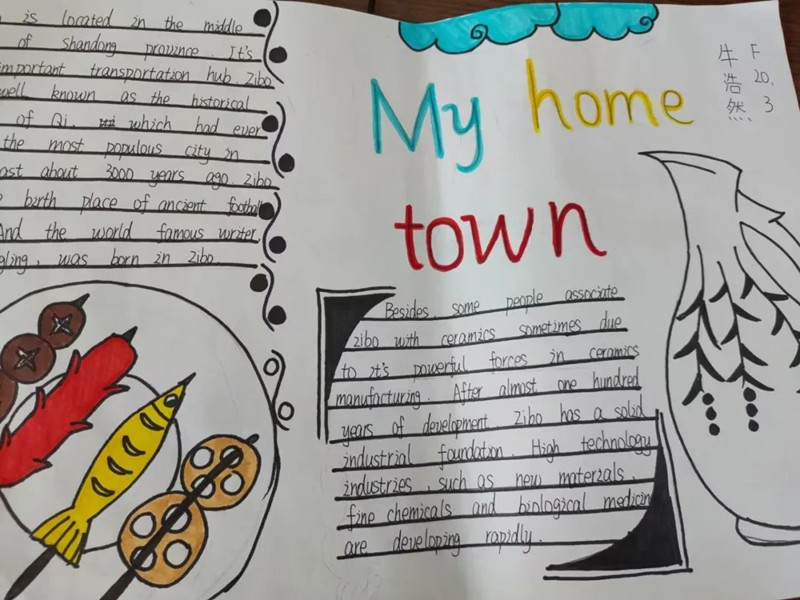 is located in the middle
of shandong province. It's
important transportation hub. Zibo
well known as the historical
of Qi. which had ever
the most populous city in
about 3000 years ago. Zibo
birth place of ancient football
And the world famous writer
was born in Zibo.
My home
town
牛浩然
F20.3
Besides, some people associate
zibo with ceramics sometimes due
to it's powerful forces in ceramics
manufacturing. After almost one hundred
years of development. Zibo has a solid
industrial foundation. High technology
industries, such as new materials,
fine chemicals and biological medicin
are developing rapidly.